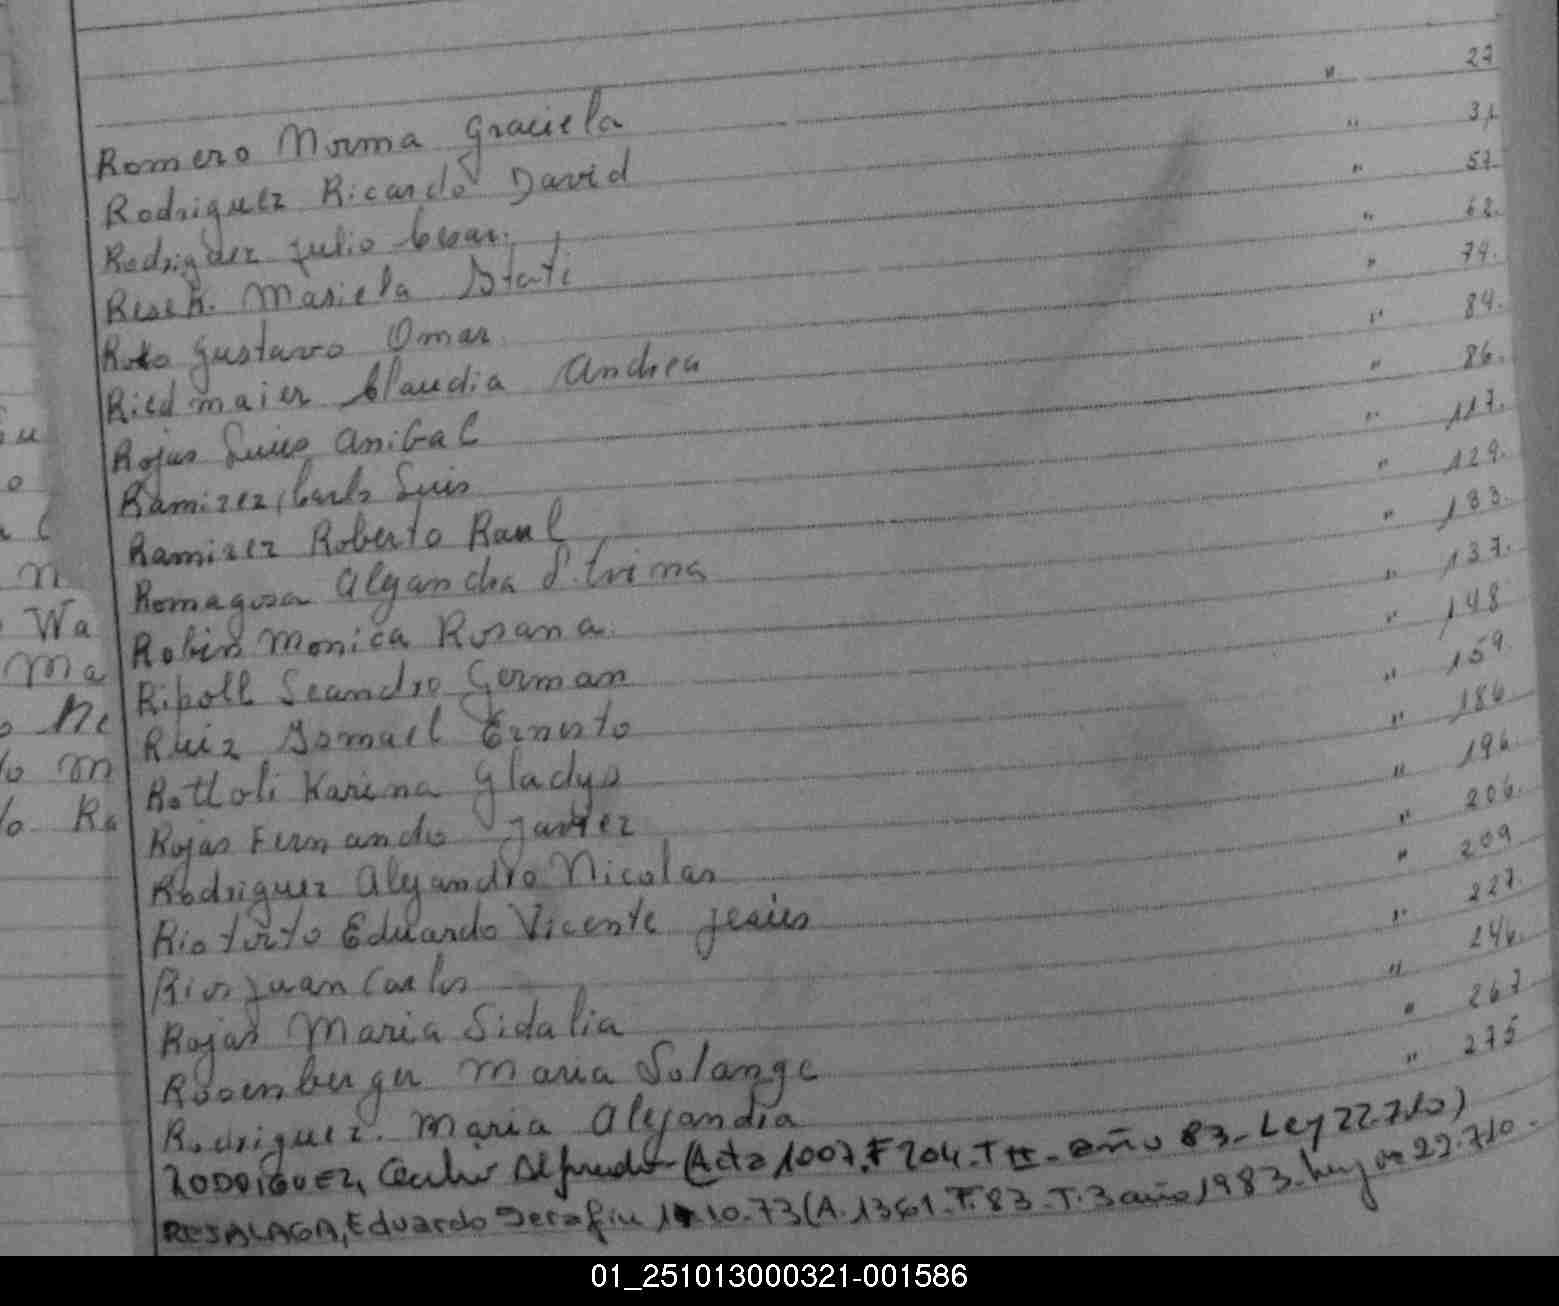 " 27
Romero Norma Graciela " 31
Rodriguez Ricardo David " 57
Rodriguez Julio Cesar. " 62.
Resek. Mariela Stati " 79.
Roto Gustavo Omar " 84.
Riedmaier Claudia Andrea " 86.
Rojas Luis Anibal " 117.
Ramirez, Carlos Luis " 129.
Ramirez Roberto Raul " 133.
Romagosa Alejandra " 137.
Robins Monica Rosana. " 148
Ripoll Leandro German " 159.
Ruiz Ismael Ernesto " 186
Rottoli Karina Gladys " 196.
Rojas Fernando Javier " 206.
Rodriguez Alejandro Nicolas " 209
Rio tirto Eduardo Vicente Jesús " 227.
Rios Juan Carlos " 246.
Rojas Maria Sidalia " 267
Rosenberger Maria Solange " 275
Rodriguez. Maria Alejandra
RODRIGUEZ, Alfredo - (Acta 1007. F 204. T II - año 83 - Ley 22.710)
RESALAGA, Eduardo Serafin 10.73 (A. 1361. F. 83. T. 3 año 1983. Ley 22.710.
Su
o
n
Wa
Ma
o Ne
lo M
lo Ra
01_251013000321-001586